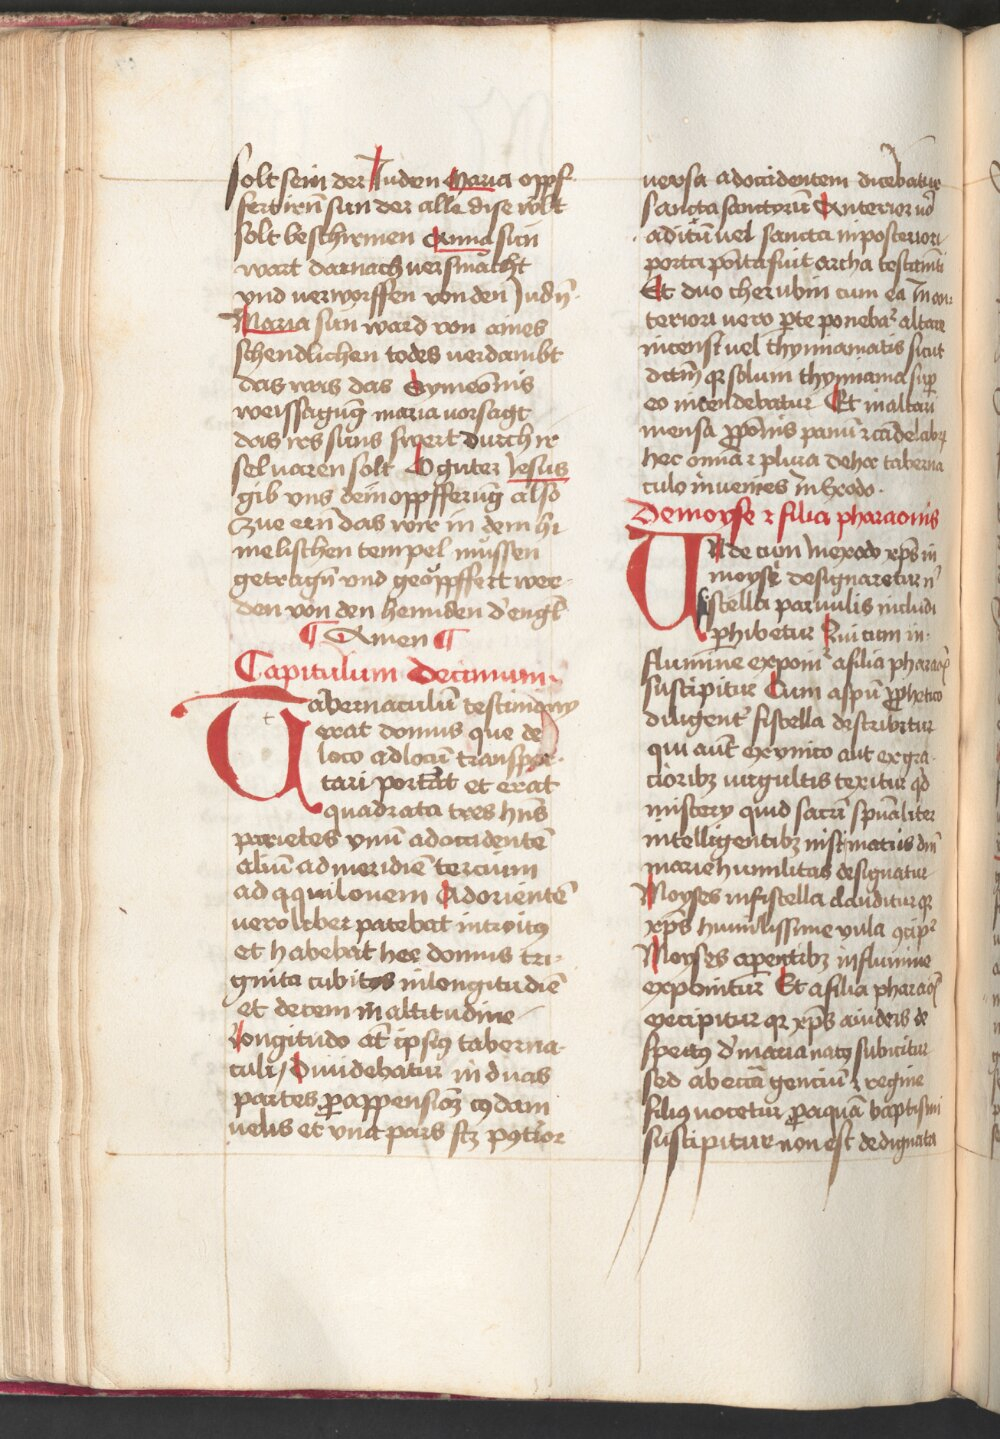 solt sein der Juden Maria opff
fert irn sun der alle dise welt
solt beschirmen Anna sun
wart darnach versmächt
vnd verworffen von den Judn̄
Maria sun ward von aines
schendlichen todes verdambt
das was das Symeonis
weissagūg maria vorsagt
das irs suns swert durch ir
sel varen solt O guter Jesus
gib vns dein oppfferūg also
zue ern das wir in dem hi
melischen tempel müssen
getragn̄ vnd geöpffert wer
den von den hennden d' engl̄
¶ Amen ¶
Capitulum decimum
Tabernaculū testimony
erat domus que de
loco ad locū transpor
tari portāt et erat
quadrata tres hn̄s
parietes vnū ad occidentē
aliū ad meridiē tercium
ad aquilonem Ad orientē
vero liber patebat introitꝰ
et habebat hec domus tri
ginta cubitos in longitudiē
et decem in altitudine
Longitudo at̄ ipsiꝰ taberna
culi / Diuidebatur in duas
partes ꝑ appensionē cꝰdam
velis et vna pars scꝫ pꝰtior
versa ad occidentem dicebatur
sancta sanctorū Anterior vō
aditū vel sancta in posteriori
porta posita fuit archa testamti
Et duo cherubin cum ea In an
teriori vero ꝑte ponebaᵗ altare
incensi vel thymiamatis sicut
dctm̄ qꝛ solum thymiama suꝑ
eo incendebatur Et in altari
mensa ꝓpōnis panū ⁊ cādelabrꝫ
hec omīa ⁊ plura de hoc taberna
culo inuenies In Exodo
De moyse ⁊ filia pharaonis
Unde cum In exodo xp̄s in
moyse designaretur nᵗ
fistella paruulis includi
ꝑhibetur Qui cum in
flumine exponiᵗ a filia pharaoīs
suscipitur Cum a spū ꝓphetico
diligentᵗ fistella describitur
qui aut̄ ex vnico aut ex gra
cioribꝫ virgultis texitur qd
mistery quid sacrī spūaliter
intelligentibꝫ insimatiis diuī
marie humilitas designatur
Moyses in fistella clauditur qꝛ
xp̄s humilissime vula ꝯcipᵗ
Moyses a parentibꝫ in flumine
exponitur Et a filia pharaoīs
excipitur qꝛ xp̄s a iudeis de
spectꝰ d' maria natꝰ subicitur
sed ab ecc̄a genciū ⁊ regine
filiꝰ vocetur ꝑ aquā baptismi
suscipitur non est dedignata